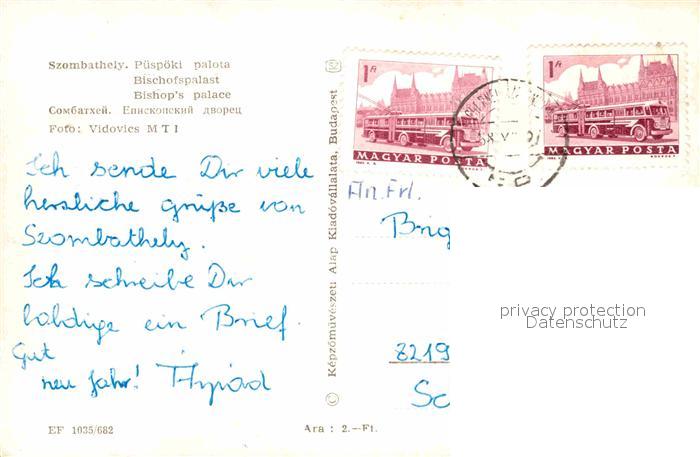 Szombathely. Püspöki palota
Bischofspalast
Bishop's palace
Сомбатхей. Епископский дворец
Foto: Vidovics MTI
Ich sende Dir viele
herzliche grüße von
Szombathely.
Ich schreibe Dir
baldige ein Brief.
Gut
neu Jahr! Árpád
EF 1035/682
Ara: 2.—Ft.
Képzőművészeti Alap Kiadóvállalata, Budapest
52
1 Ft
MAGYAR POSTA
1 Ft
MAGYAR POSTA
An. Frl.
Brig
8219
Sc
privacy protection
Datenschutz